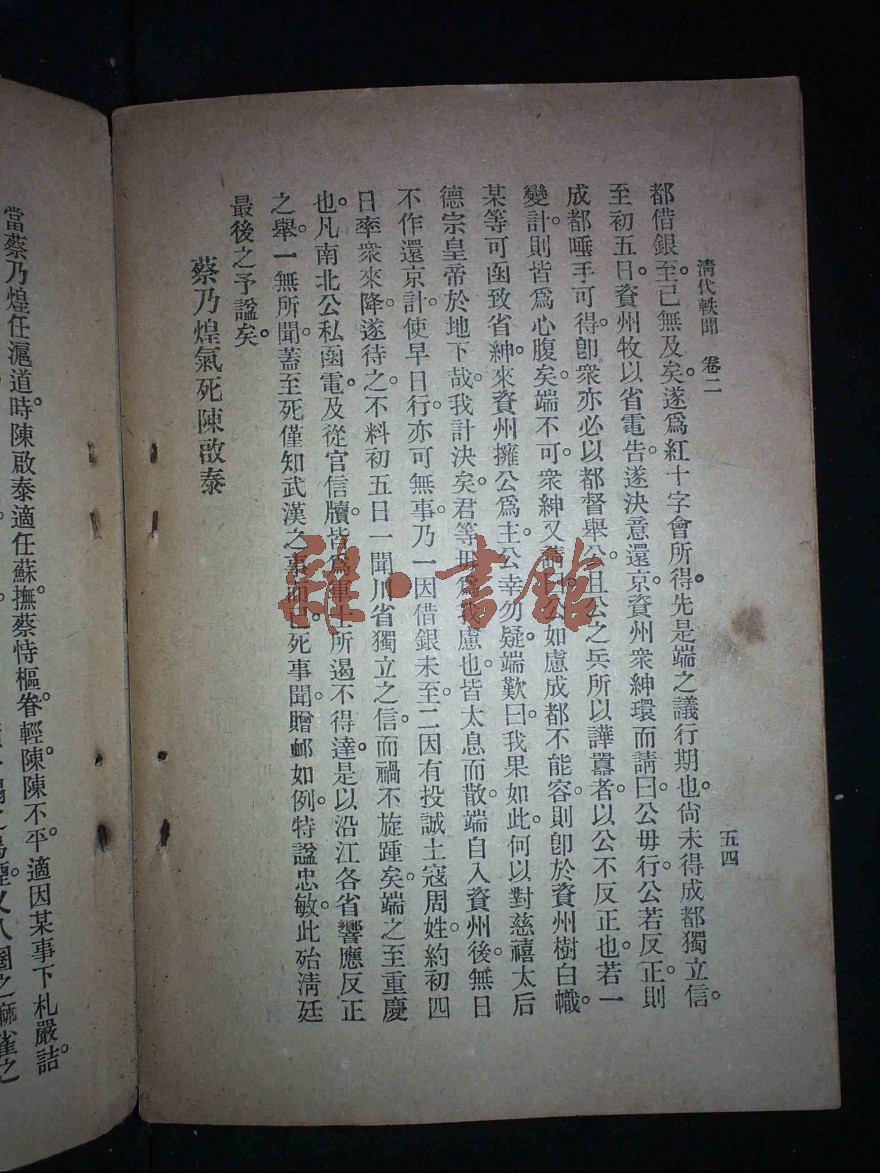 清代軼聞　卷二
五四
都借銀至已無及矣。遂爲紅十字會所得。先是端之議行期也。尙未得成都獨立信。
至初五日。資州牧以省電告。遂決意還京。資州衆紳環而請曰。公毋行。公若反正。則
成都唾手可得。卽衆亦必以都督舉公。且公之兵所以譁囂者。以公不反正也。若一
變計。則皆爲心腹矣。端不可。衆紳又請曰。公如慮成都不能容。則卽於資州樹白幟。
某等可函致省紳。來資州擁公爲主。公幸勿疑。端歎曰。我果如此。何以對慈禧太后
德宗皇帝於地下哉。我計決矣。君等毋爲我慮也。皆太息而散。端自入資州後。無日
不作還京計。使早日行。亦可無事。乃一因借銀未至。二因有投誠土寇周姓。約初四
日率衆來降。遂待之。不料初五日一聞川省獨立之信。而禍不旋踵矣。端之至重慶
也。凡南北公私函電。及從官信牘。皆爲軍士所遏不得達。是以沿江各省響應反正
之舉。一無所聞。蓋至死僅知武漢之事而已。死事聞。贈衈如例。特諡忠敏。此殆淸廷
最後之予諡矣。
蔡乃煌氣死陳啟泰
當蔡乃煌任滬道時。陳啟泰適任蘇撫。蔡恃樞眷。輕陳。陳不平。適因某事下札嚴詰。
之烏煙。又八圈之麻雀之